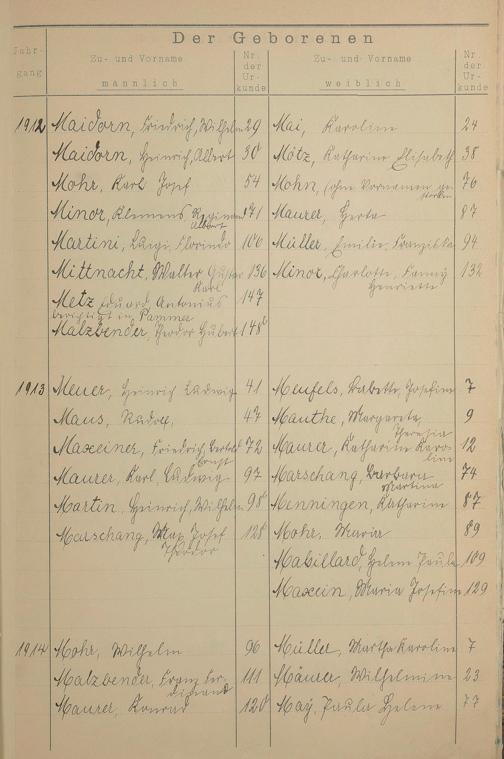 Der Geborenen
Jahr-
gang
Zu- und Vorname
männlich
Nr.
der
Ur-
kunde
Zu- und Vorname
weiblich
Nr.
der
Ur-
kunde
1912 Maidorn, Friedrich, Wilhelm 29 Mai, Karoline 24
Maidorn, Heinrich, Albert 30 Mötz, Katharina Elisabeth 38
Mohr, Karl Josef 54 Mohn, (ohne Vornamen ge- 76
storben
Minor, Klemens 71 Maurer, Herta 87
Albert
Martini, Luigi, Florindo 106 Müller, Emilie, Franziska 94
Mittnacht, Walter Gustav 136 Minor, Charlotte, Fanny 132
Karl Henriette
Metz, Eduard, Antonius 147
berichtigt in Pammer
Malzbender, Theodor Hubert 148
1913 Meuer, Heinrich Ludwig 41 Meufels, Babette, Josefine 7
Maus, Rudolf, 47 Mauthe, Margareta 9
Theresia
Maxeiner, Friedrich, 72 Maurer, Katharina Karo- 12
Ernst line
Maurer, Karl, Ludwig 97 Marschang, Barbara 74
Martina
Martin, Heinrich, Wilhelm 98 Menningen, Katharina 87
Marschang, Max Josef 128 Mohr, Maria 89
Theodor
Mabillard, Helene Paula 109
Maxein, Maria Josefine 129
1914 Mohr, Wilhelm 96 Müller, Martha Karoline 7
Malzbender, Franz Fer- 111 Mäurer, Wilhelmine 23
dinand
Maurer, Konrad 120 Maÿ, Paula Helene 77